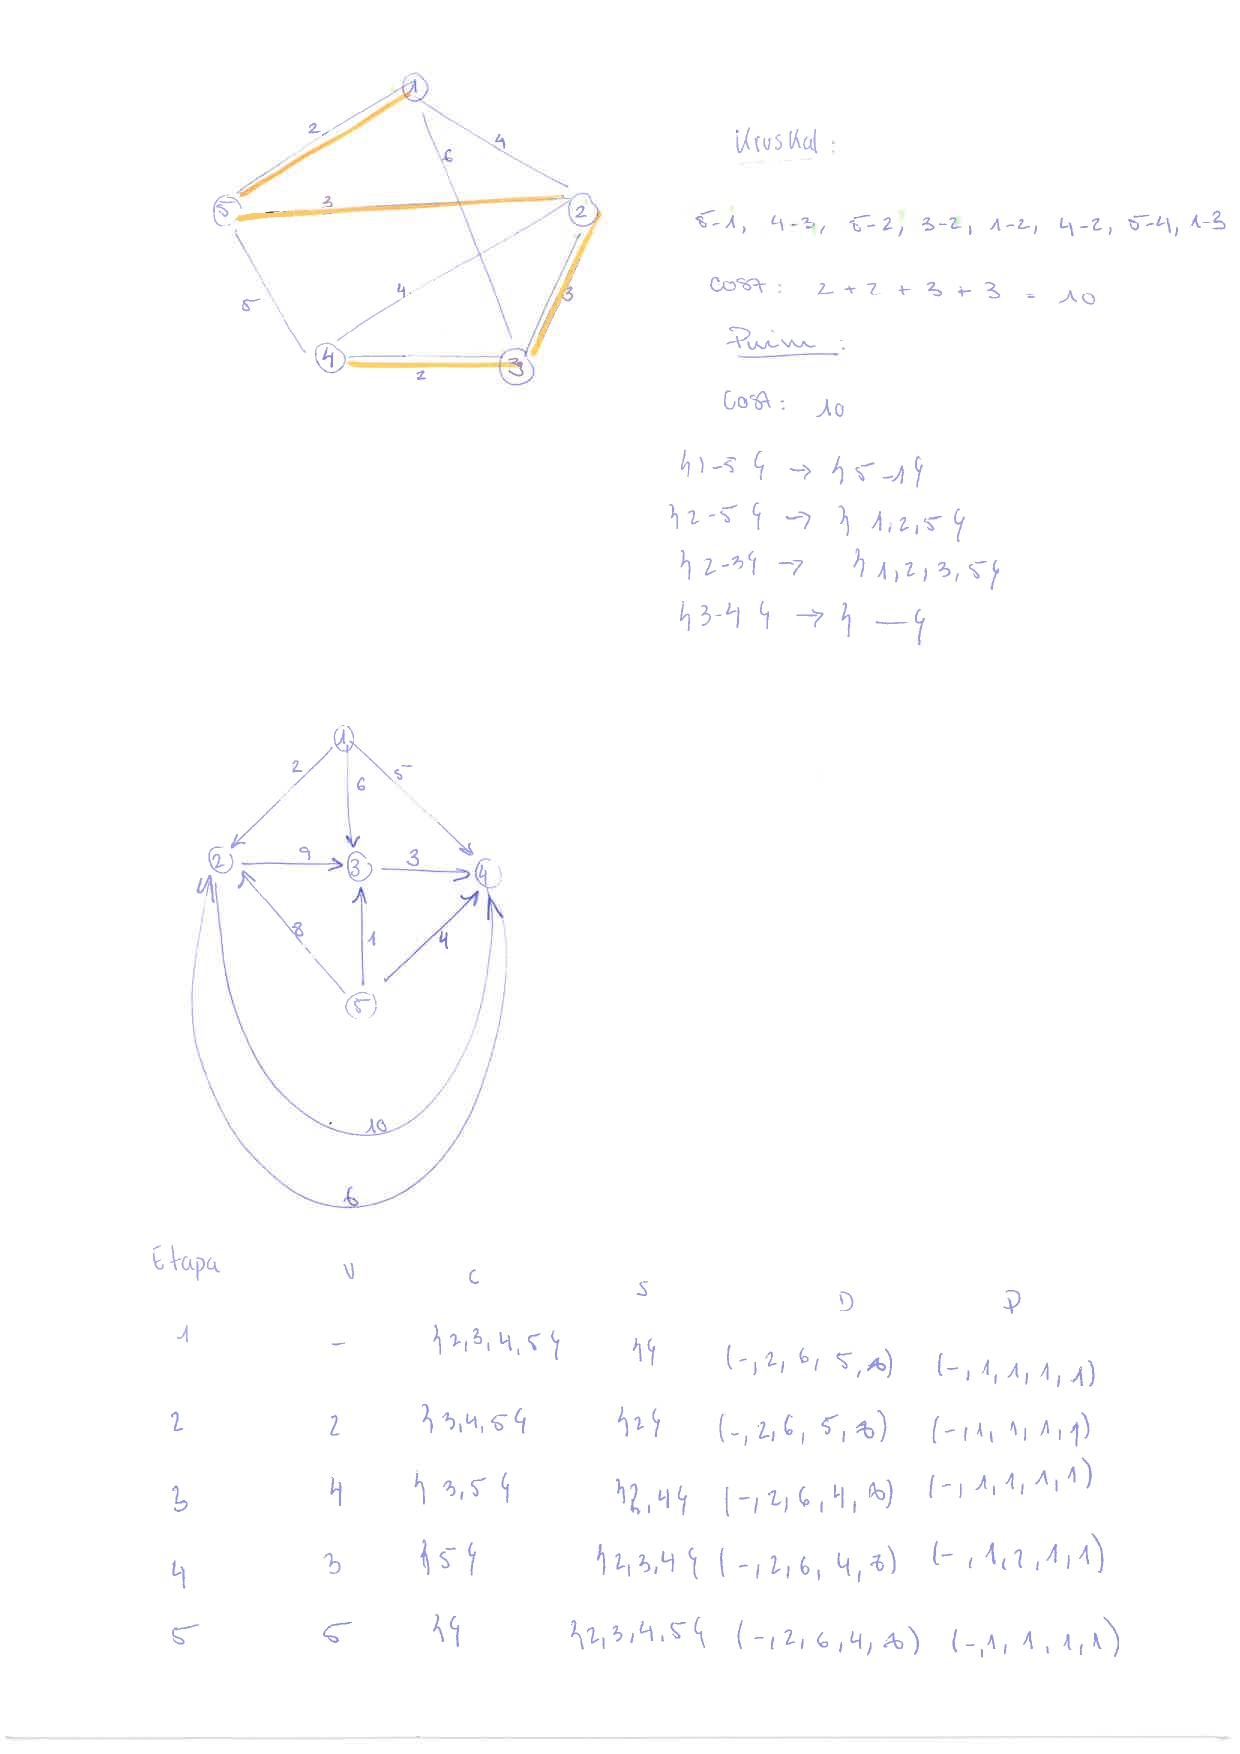 1
2
4
6
5
3
2
5
4
3
4
3
2
Kruskal:
5-1, 4-3, 5-2, 3-2, 1-2, 4-2, 5-4, 1-3
cost: 2+2+3+3 = 10
Prim:
Cost: 10
{1-5} → {5-1}
{2-5} → {1,2,5}
{2-3} → {1,2,3,5}
{3-4} → {—}
1
2
5
6
2
9
3
3
4
8
1
4
5
10
6
Etapa V C S D P
1 - {2,3,4,5} {} (-,2,6,5,∞) (-,1,1,1,1)
2 2 {3,4,5} {2} (-,2,6,5,∞) (-,1,1,1,1)
3 4 {3,5} {2,4} (-,2,6,4,∞) (-,1,1,1,1)
4 3 {5} {2,3,4} (-,2,6,4,∞) (-,1,2,1,1)
5 5 {} {2,3,4,5} (-,2,6,4,∞) (-,1,1,1,1)